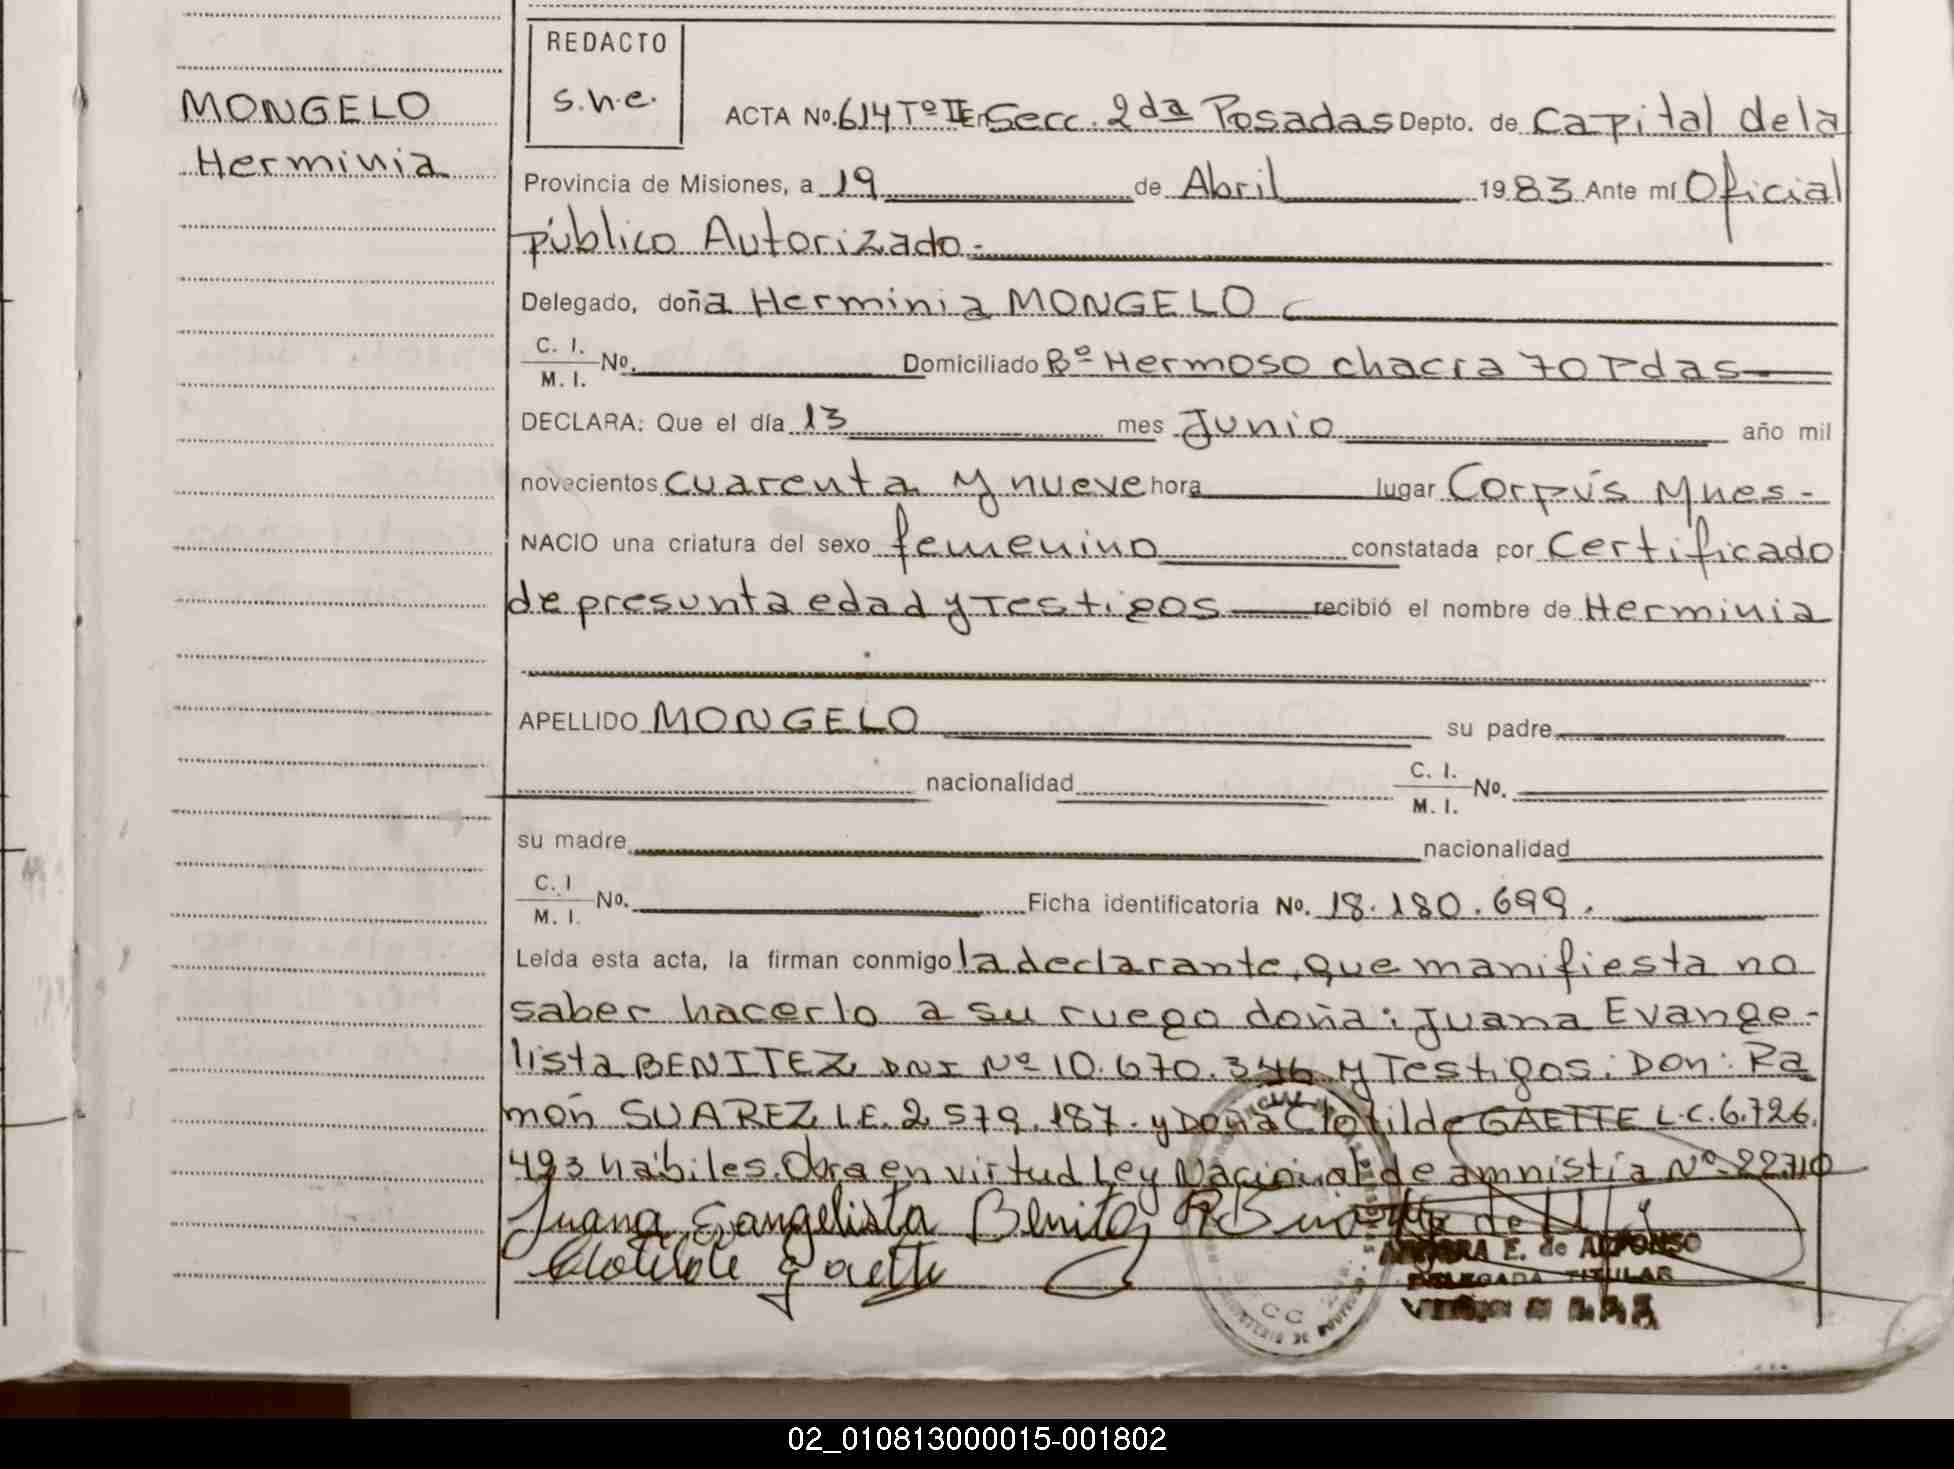 MONGELO
Herminia
REDACTO
s.n.e.
ACTA No. 614 Tº II Secc. 2da Posadas Depto. de Capital de la
Provincia de Misiones, a 19 de Abril 1983 Ante mí Oficial
público Autorizado.-
Delegado, doña Herminia MONGELO
C. I.
M. I.
No. Domiciliado Bº Hermoso chacra 70 Pdas
DECLARA: Que el día 13 mes Junio año mil
novecientos cuarenta y nueve hora lugar Corpús Mnes-
NACIO una criatura del sexo femenino constatada por Certificado
de presunta edad y Testigos recibió el nombre de Herminia
APELLIDO MONGELO su padre
nacionalidad C. I.
M. I. No.
su madre nacionalidad
C. I
M. I.
No. Ficha identificatoria No. 18.180.699.
Leída esta acta, la firman conmigo la declarante, que manifiesta no
saber hacerlo a su ruego doña: Juana Evange-
lista BENITEZ DNI Nº 10.670.346 y Testigos: Don: Ra
món SUAREZ L.E. 2.579.187. y Doña Clotilde GAETTE L.C. 6.726.
493 hábiles. Obra en virtud Ley Nacional de amnistía Nº 22.710
Juana Evangelista Benitez
Clotilde Gaette
E. de ALFONSO
DELEGADA TITULAR
02_010813000015-001802